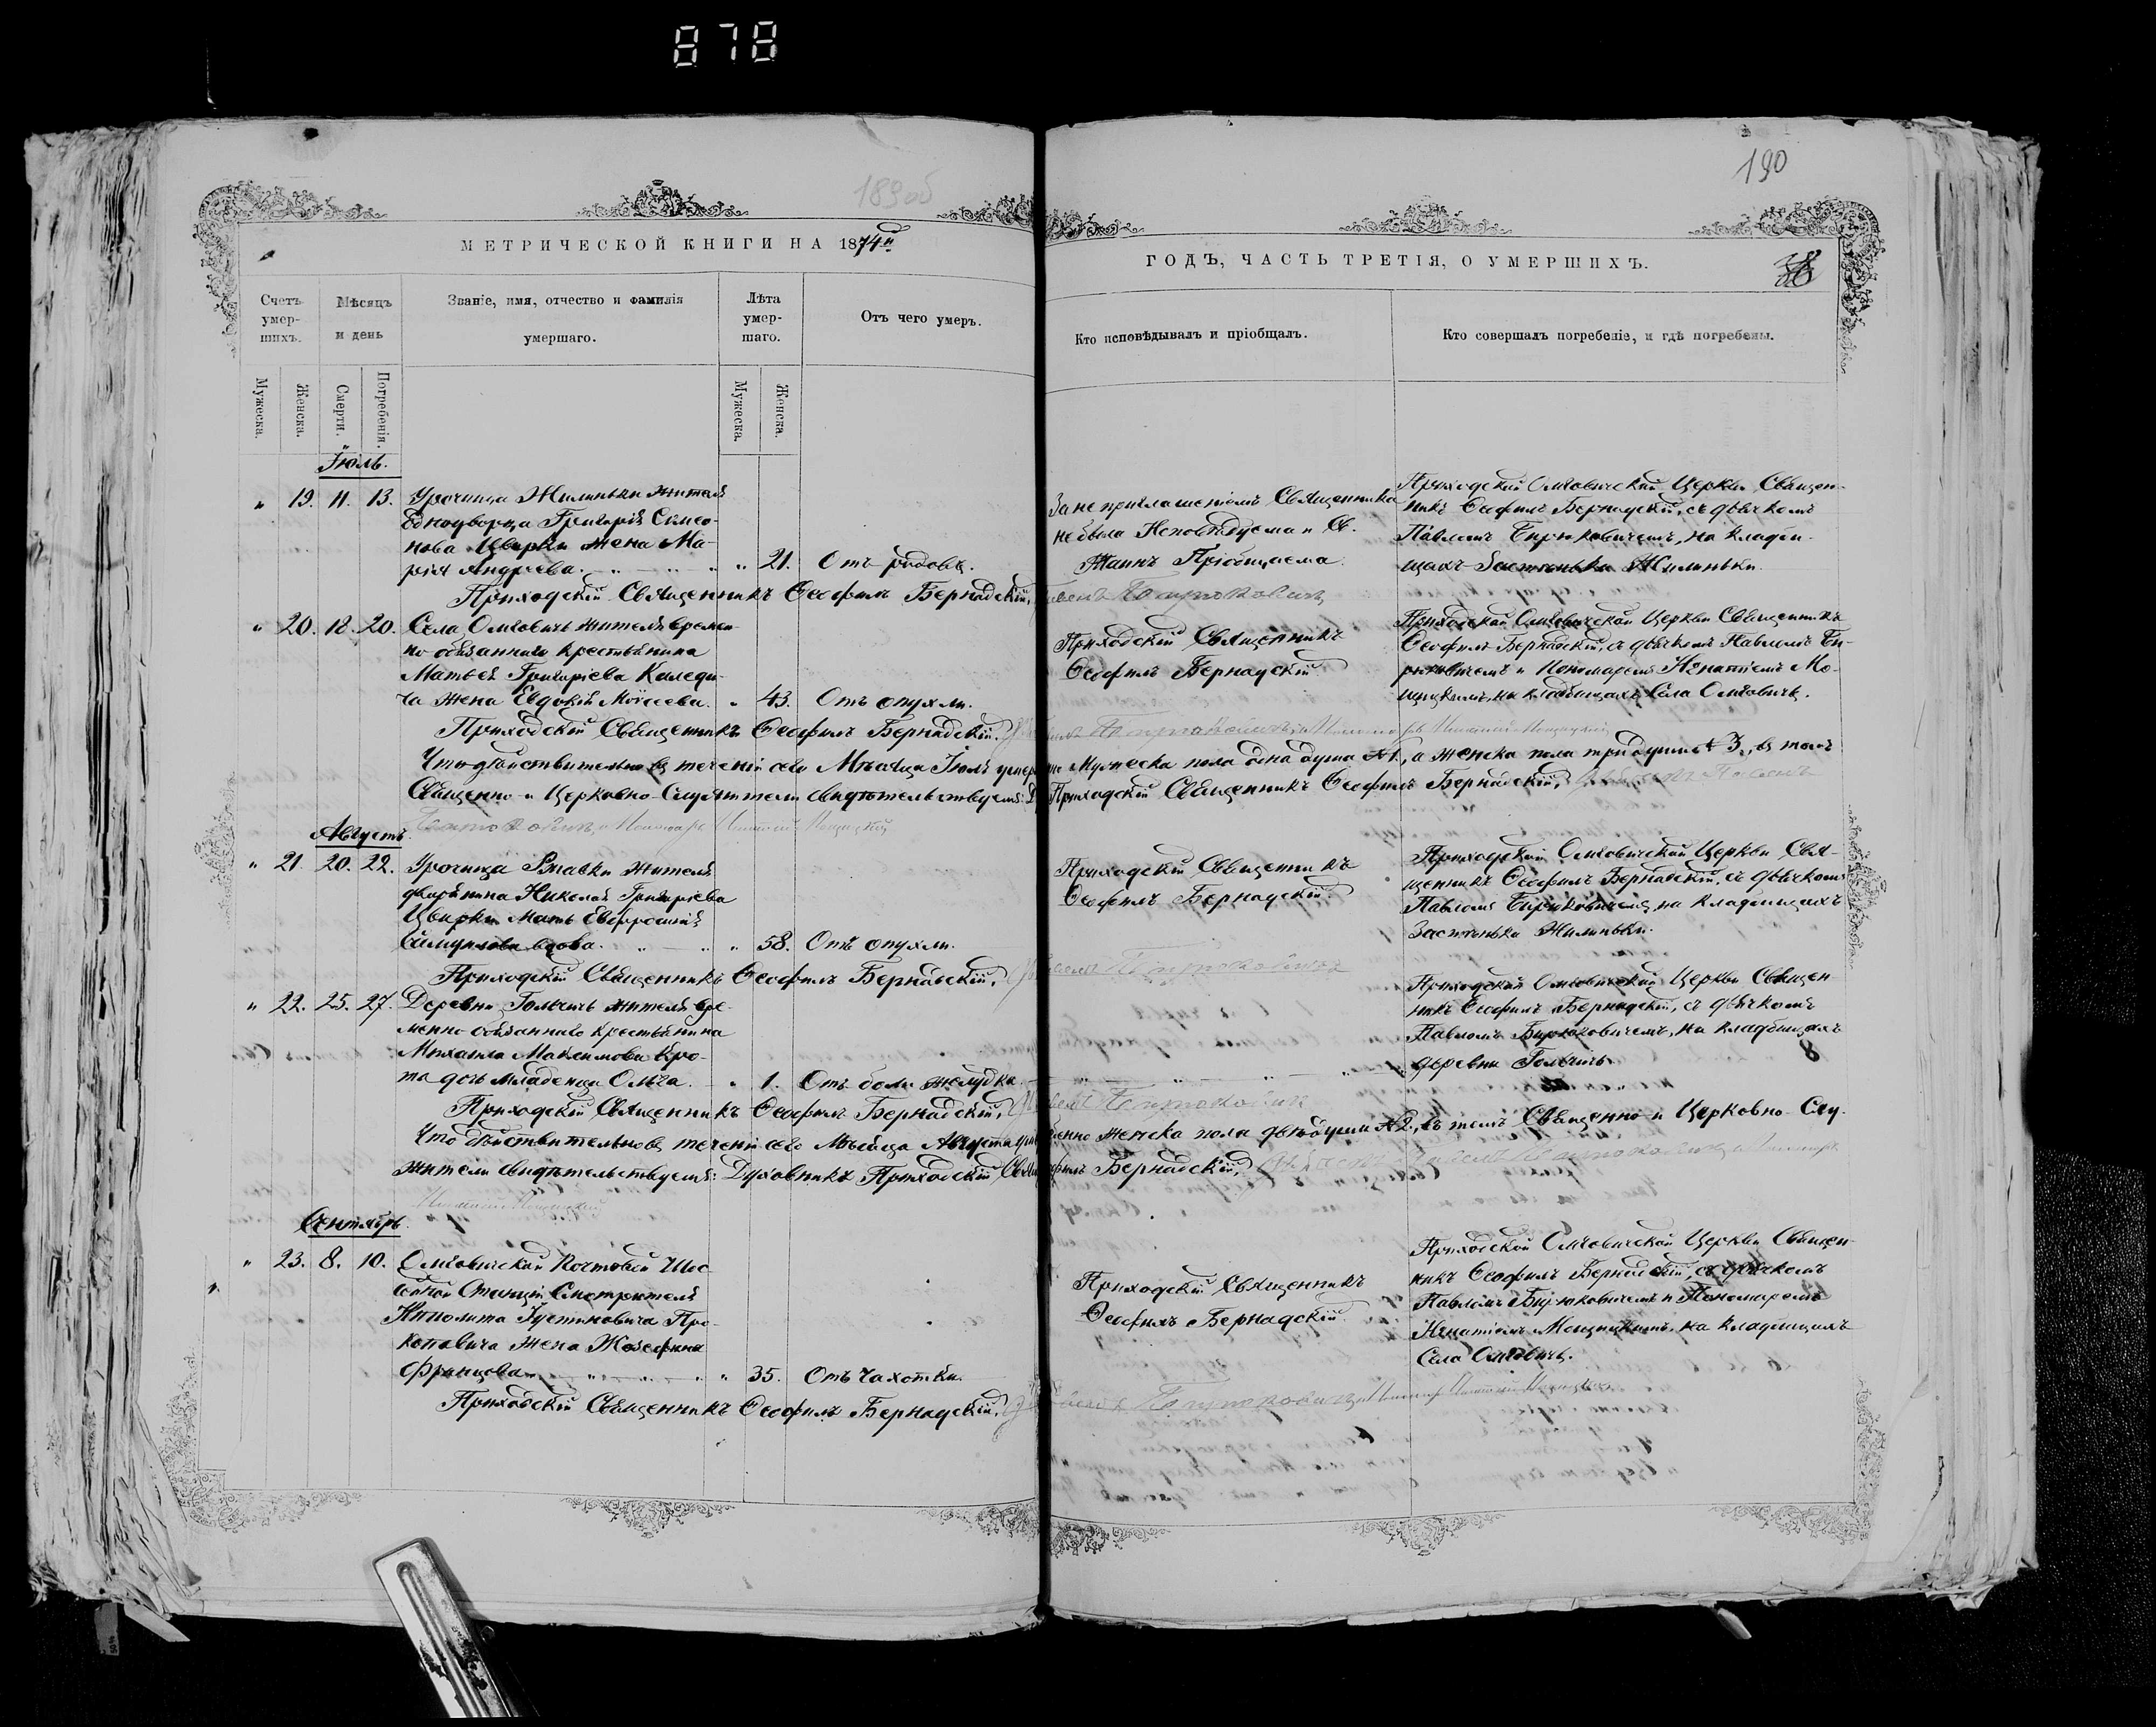 878
189об
190
МЕТРИЧЕСКОЙ КНИГИ НА 1874й
ГОДЪ, ЧАСТЬ ТРЕТІЯ, О УМЕРШИХЪ.
Счетъ умер-шихъ.
Мѣсяцъ и день
Званіе, имя, отчество и фамилія умершаго.
Лѣта умер-шаго.
Отъ чего умеръ.
Кто исповѣдывалъ и пріобщалъ.
Кто совершалъ погребеніе, и гдѣ погребены.
Мужеска.
Женска.
Смерти.
Погребенія.
Мужеска.
Женска.
Іюль.
" 19. 11. 13. Урочища Жилиньки жителя
Однодворца Григорія Симео-
нова Цвирки жена Ма-
рія Андреева. " 21. Отъ родовъ.
За не приглашеніемъ Священника
не была Исповѣдуема и Св.
Таинъ Пріобщаема.
Приходскій Омговичской Церкви Священ-
никъ Ѳеофилъ Бернадскій, съ дьячкомъ
Павломъ Бирюковичемъ, на кладби-
щахъ Застѣнька Жилиньки.
Приходскій Священникъ Ѳеофилъ Бернадскій,
" 20. 18. 20. Села Омговичъ жителя времен-
но обязаннаго крестьянина
Матвея Григоріева Каледи-
ча жена Евдокія Моисеева. " 43. Отъ опухли.
Приходскій Священникъ
Ѳеофилъ Бернадскій
Приходской Омговичской Церкви Священникъ
Ѳеофилъ Бернадскій, съ дьячкомъ Павломъ Би-
рюковичемъ и Пономаремъ Игнатіемъ Мо-
щицкимъ, на кладбищахъ Села Омговичъ.
Приходскій Священникъ Ѳеофилъ Бернадскій,
Что дѣйствительно въ теченіи сего Мѣсяца Іюля умер Мужеска пола одна душа №1, а женска пола три души №3, въ томъ
Священно и Церковно-Служители свидѣтельствуемъ: Приходскій Священникъ Ѳеофилъ Бернадскій,
Августъ.
" 21. 20. 22. Урочища жителя
дворянина Николая Григоріева
Цвирки Мать Евфросинія
Самуилова вдова. " 58. Отъ опухли.
Приходскій Священникъ
Ѳеофилъ Бернадскій
Приходскій Омговичской Церкви Свя-
щенникъ Ѳеофилъ Бернадскій, съ дьячкомъ
Павломъ Бирюковичемъ, на кладбищахъ
Застѣнька Жилиньки.
Приходскій Священникъ Ѳеофилъ Бернадскій,
" 22. 25. 27. Деревни Гольчичъ жителя вре-
менно обязаннаго крестьянина
Михаила Максимова Кро-
та дочь младенца Ольга. " 1. Отъ боли желудка.
Приходской Омговичской Церкви Священ-
никъ Ѳеофилъ Бернадскій, съ дьячкомъ
Павломъ Бирюковичемъ, на кладбищахъ
деревни Гольчичъ.
Приходскій Священникъ Ѳеофилъ Бернадскій,
Что дѣйствительно въ теченіи сего Мѣсяца Августа женска пола двѣ души №2, въ томъ Священно и Церковно-Слу-
жители свидѣтельствуемъ: Духовникъ Приходскій Бернадскій,
Сентябрь.
" 23. 8. 10. Омговичской Почтовой Шос-
сейной Станціи Смотрителя
Ипполита Іустиновича Про-
коповича жена Жозефина
Францова. " 35. Отъ чахотки.
Приходскій Священникъ
Ѳеофилъ Бернадскій
Приходской Омговичской Церкви Священ-
никъ Ѳеофилъ Бернадскій, съ дьячкомъ
Павломъ Бирюковичемъ и Пономаремъ
Игнатіемъ Мощицкимъ, на кладбищахъ
Села Омговичъ.
Приходскій Священникъ Ѳеофилъ Бернадскій,